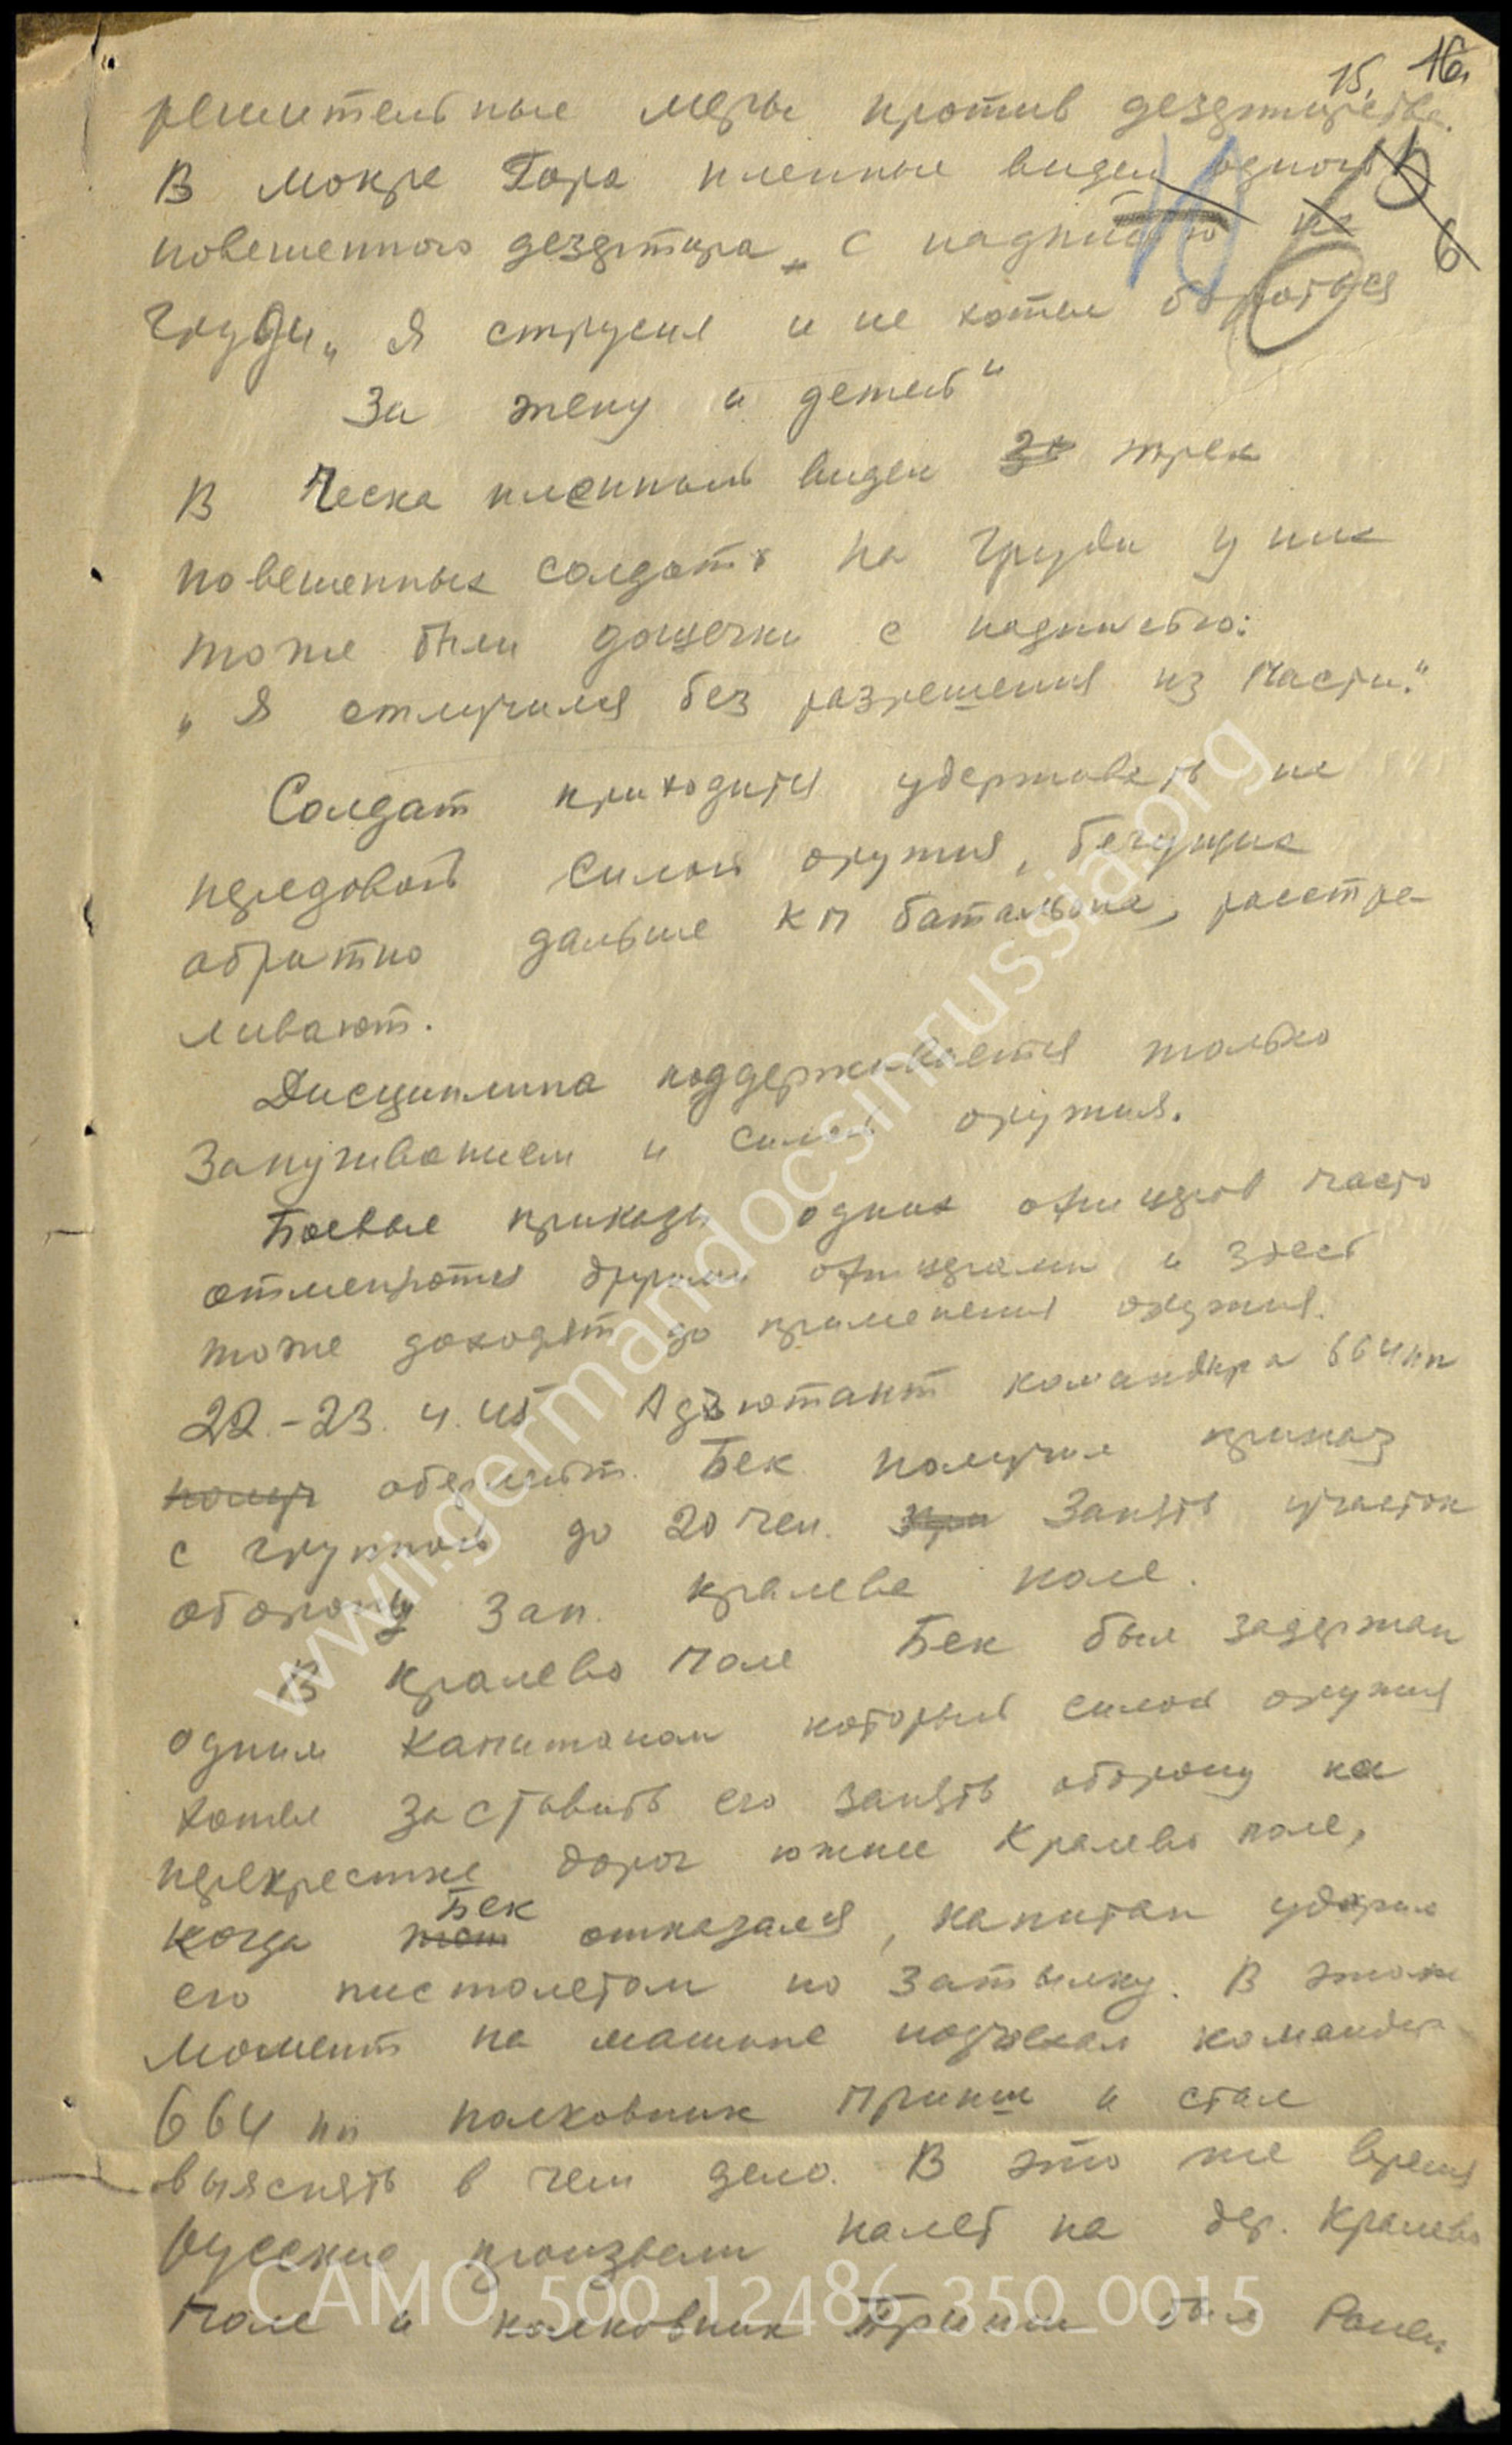 15. 16.
решительные меры против дезертирства.
В мокре Гора пленные видел одного
повешенного дезертира „ с надписью на
груди „ Я струсил и не хотел бороться
за жену и детей“
В Ческа пленный видел за трех
повешенных солдат на груди у них
тоже были дощечки с надписью:
„ Я отлучился без разрешения из части.“
Солдат приходится удерживать на
передовой силой оружия, бегущих
обратно дальше КП батальона, расстре-
ливают.
Дисциплина поддерживается только
запугиванием и силой оружия.
Боевые приказы одних офицеров часто
отменяются другими офицерами и здесь
тоже доходят до применения оружия.
22.-23. 4. 45 Адъютант командира 664 пп
получ оберлейт. Бек получил приказ
с группой до 20 чел. занять участок
обороны зап. кралеве поле.
В кралево поле Бек был задержан
одним капитаном который силой оружия
хотел заставить его занять оборону на
перекрестке дорог южнее Кралево поле,
Бек
когда тот отказался, капитан ударил
его пистолетом по затылку. В этот
момент на машине подъехал командир
664 пп полковник Принш и стал
выяснять в чем дело. В это же время
русские произвели налет на дер. Кралево
поле и полковник Принш был ранен
www.germandocsinrussia.org
CAMO_500_12486_350_0015